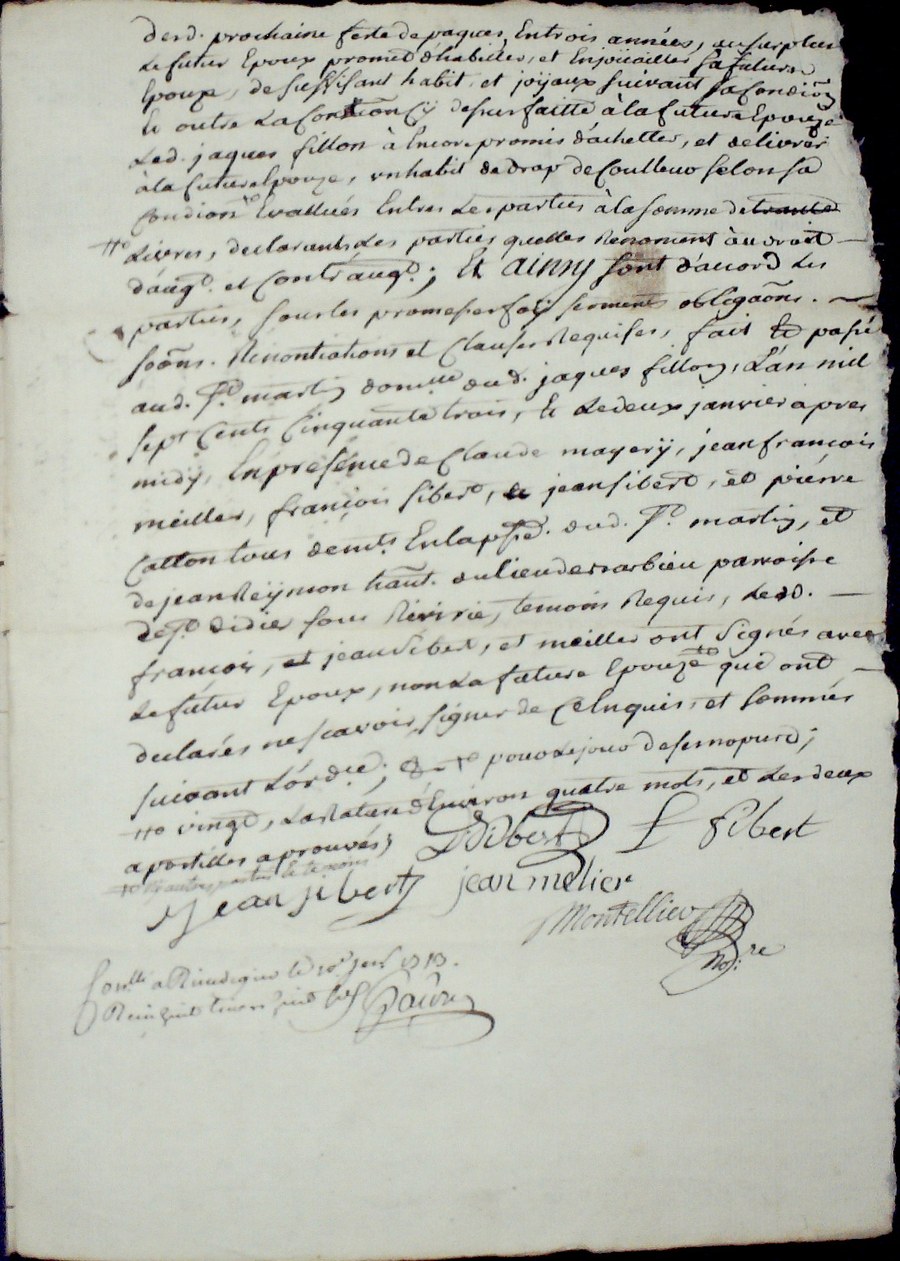 desd. prochaine feste de paques, En trois années, au surplus
Le futur Epoux promet d'habiller, et Enjoüailler sa future
Epouze, de suffisant habit, et joÿaux suivant sa Condiôn
Et outre La Constiôn cÿ dessus faitte à la future Epouze
Led. jaques fillon à Encore promis d'achetter, et delivrer
à la future Epouze, un habit de drap de Coulleur selon sa
Condiôn Evallués Entre Les parties à la somme de trante
#o Livres, declarants Les parties quelles Renoncent au droit
d'augt. et Contr'augt.; Et Ainsy sont d'accord Les
parties, sous les promesses foy serments obligaôns.
soôns. Renontiations et Clauses Requises, fait Et passé
aud. St. martin domille dud. jaques fillon, L'an mil
sept Cents Cinquante trois, Et Le deux janvier apres
midÿ, En présence de Claude mayery, jean françois
meiller, françois sibert, et jean sibert, et piérre
Catton tous demts. En la psse. dud. St. martin, et
de jean Reÿmon hant. du lieu de parroisse
de St. didier sous Rivirie, temoins Requis, Lesd.
françois, et jean Sibert, et meiller ont signés avec
Le futur Epoux, non La future Epouze qui ont
declarés ne scavoir signer de Ce Enquis, et sommés
suivant L'ordce.; pour Le jour de
#o vingt, La Rature d'Environ quatre mots, et Les deux
apostilles aprouvés; Sibert f Sibert
Jean Sibert jean melier
Montellier
Nore
Conllé a Rivedegier le 10e janv 1753.
Reçu